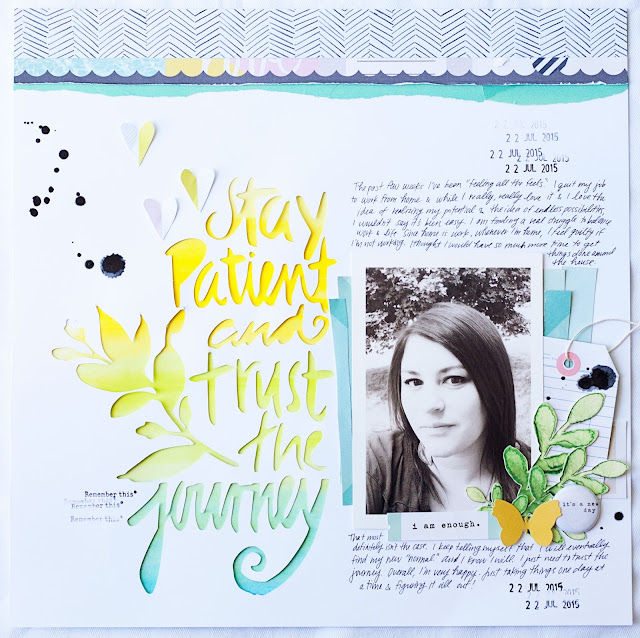 22 JUL 2015
22 JUL 2015
22 JUL 2015
22 JUL 2015
Stay
Patient
and
trust
the
journey
The past few weeks I've been "feeling all the feels." I quit my job
to work from home & while I really, really love it & I love the
idea of realizing my potential & the idea of endless possibilities,
I wouldn't say it's been easy. I am finding a real struggle to balance
work & life. Since home is work, whenever I'm home, I feel guilty if
I'm not working. I thought I would have so much more time to get
things done around
the house.
Remember this*
Remember this*
Remember this*
Remember this*
i am enough.
it's a new
day
That most
definitely isn't the case. I keep telling myself that I will eventually
find my new "normal" and I know I will. I just need to trust the
journey. Overall, I'm very happy. Just taking things one day at
a time & figuring it all out!
22 JUL 2015
22 JUL 2015